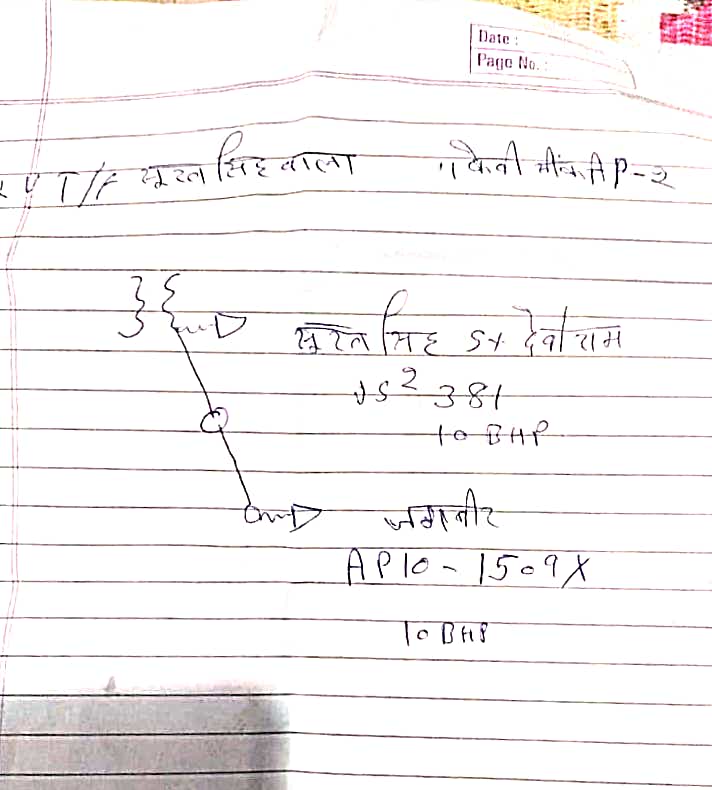 Date :
Page No. :
T/F सूरत सिंह वाला 11 केवी AP-2
सूरत सिंह S/o देवीराम
JS2 381
10 BHP
जगबीर
AP10-1509X
10 BHP